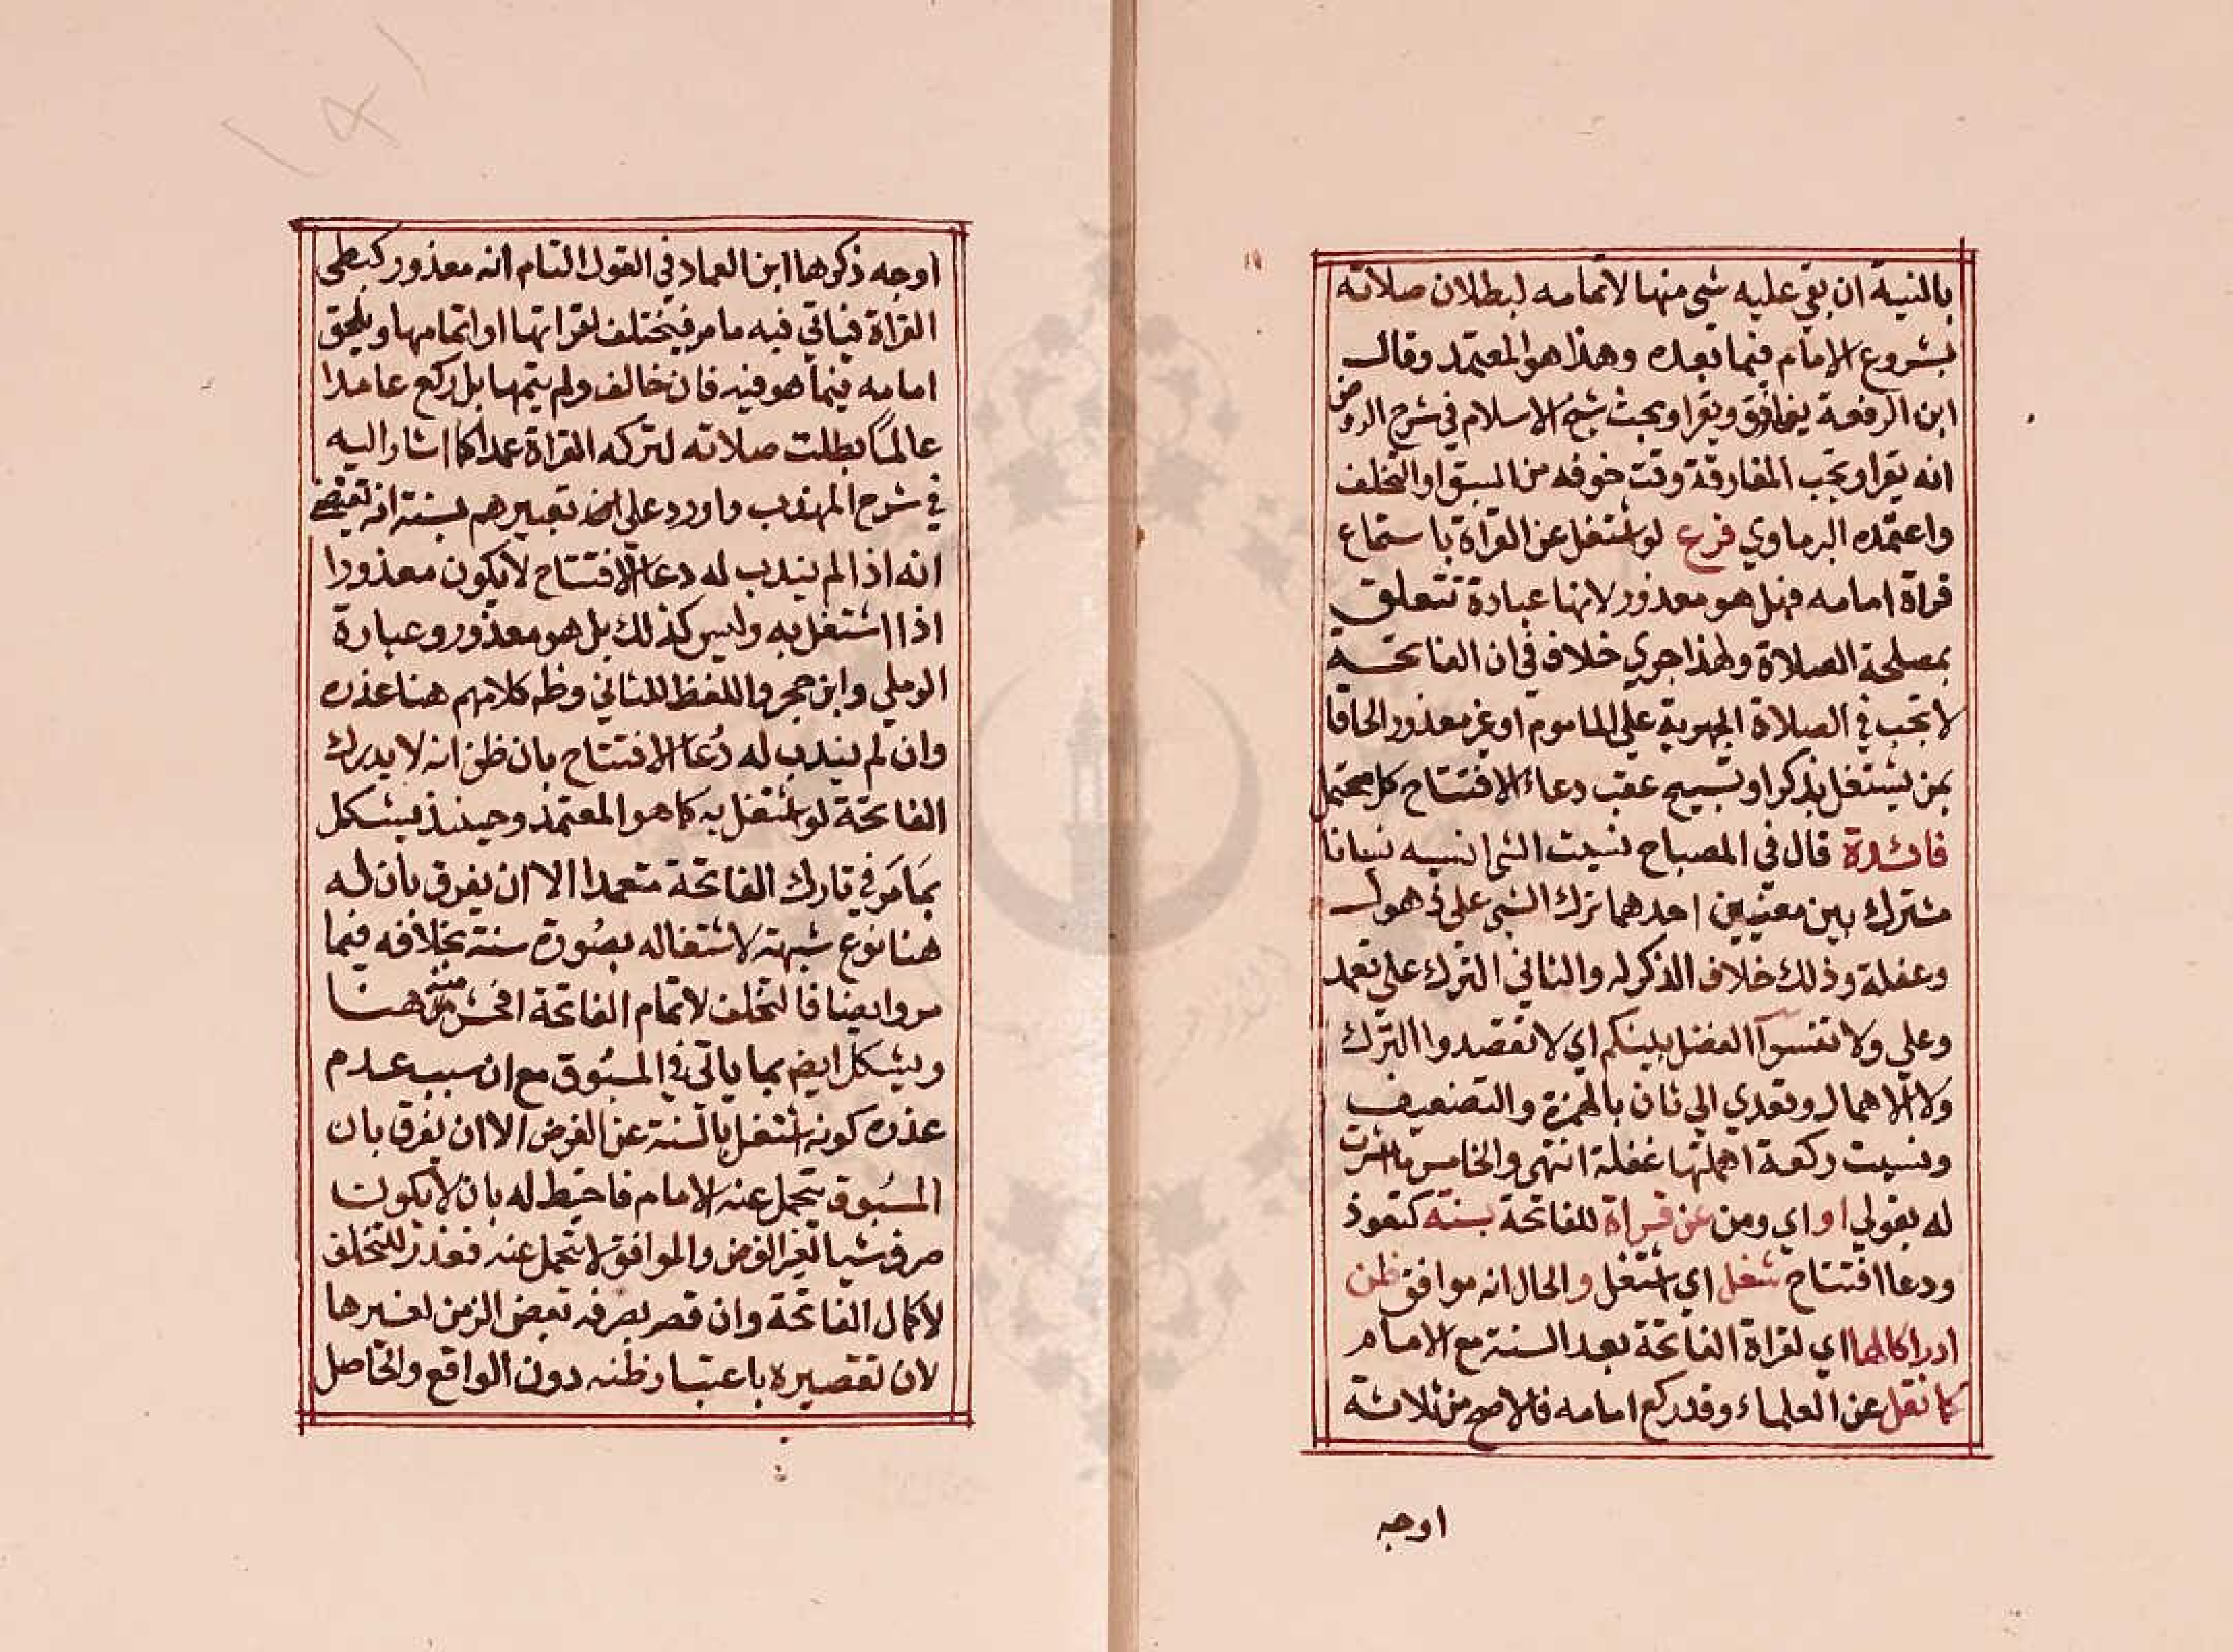 بالنية ان بقي عليه شي منها لاتمامه لبطلان صلاته
بشروع الامام فيما بعده وهذا هو المعتمد وقال
ابن الرفعة يوافق ويقرا وبحث شيخ الاسلام في شرح الروض
انه يقرا وتجب المفارقة وقت خوفه من السبق او التخلف
واعتمده البرماوي فرع لو اشتغل عن القراة باستماع
قراة امامه فهل هو معذور لانها عبادة تتعلق
بمصلحة الصلاة ولهذا جري خلاف في ان الفاتحة
لا تجب في الصلاة الجهرية علي الماموم او غير معذور الحاقا
بمن يشتغل بذكر او تسبيح عقب دعاء الافتتاح كل محتمل
فائدة قال في المصباح نسيت الشي انسيه نسيانا
مشترك بين معنيين احدهما ترك الشي علي ذهول
وغفلة وذلك خلاف الذكر له والثاني الترك علي تعمد
وعلي ولا تنسوا الفضل بينكم اي لا تقصدوا الترك
والاهمال وتعدي الي ثان بالهمزة والتضعيف
ونسيت ركعة اهملتها غفلة انتهي والخامس ما اشرت
له بقولي او اي ومن عن قراة للفاتحة بسنة كتعوذ
ودعا افتتاح شغل اي اشتغل والحال انه موافق ظن
ادراكا لها اي لقراة الفاتحة بعد السنة مع الامام
كما نقل عن العلماء وقد ركع امامه فالاصح من ثلاثة
اوجه
اوجه ذكرها ابن العماد في القول التام انه معذور كبطي
القراة فياتي فيه ما مر فيختلف لقراتها او اتمامها ويلحق
امامه فيما هو فيه فان خالف ولم يتمها بل ركع عامدا
عالما بطلت صلاته لتركه القراة عمدا كما اشار اليه
في شرح المهذب واورد علي تعبيرهم بسنة انه يقتضي
انه اذا لم يندب له دعا الافتتاح لا يكون معذورا
اذا اشتغل به وليس كذلك بل هو معذور وعبارة
الرملي وابن حجر واللفظ للثاني وظه كلامهم هنا عذره
وان لم يندب له دُعا الافتتاح بان ظن انه لا يدرك
الفاتحة لو اشتغل به كما هو المعتمد وحينئذ يشكل
بما مر في تارك الفاتحة متعمدا الا ان يفرق بان له
هنا نوع شبهة لاشتغاله بصورة سنة بخلافه فيما
مر وايضا فالتخلف لاتمام الفاتحة افحش منه هنا
ويشكل ايضم بما ياتي في المسبوق مع ان سبب عدم
عذره كونه اشتغل بالسنة عن الفرض الا ان يفرق بان
المسبوق يتحمل عنه الامام فاحتيط له بان لا يكون
صرف شيا لغير الفرض والموافق لا يتحمل عنه فعذر للتخلف
لاكمال الفاتحة وان قصر بصرفه بعض الزمن لغيرها
لان تقصيره باعتبار ظنه دون الواقع والحاصل